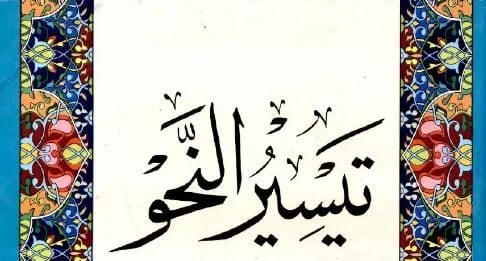 تَيْسِيرُ النَّحْو